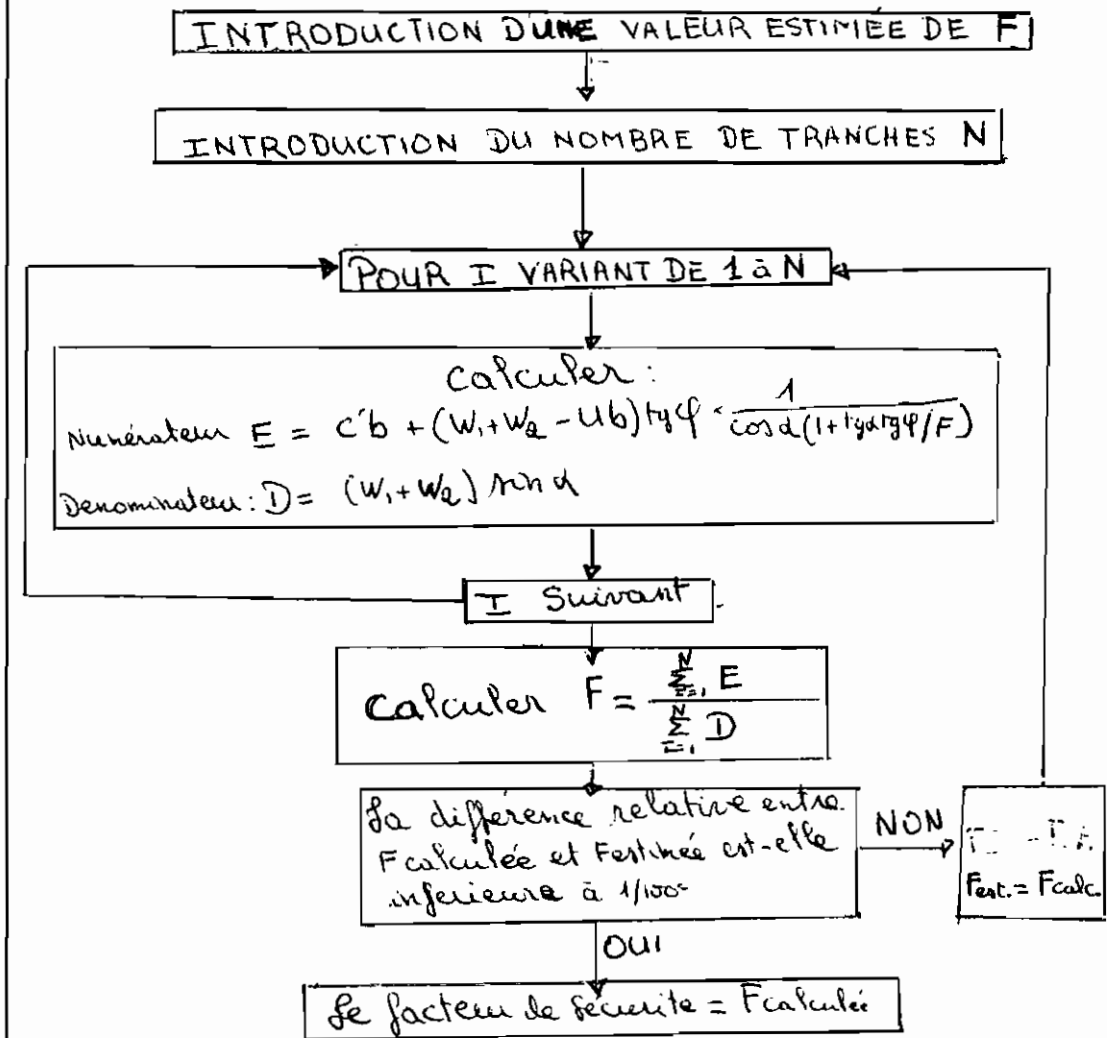 INTRODUCTION D'UNE VALEUR ESTIMÉE DE F
INTRODUCTION DU NOMBRE DE TRANCHES N
POUR I VARIANT DE 1 à N
Calculer :
Numérateur E = c'b + (W₁+W₂ - Ub) tgφ · 1/(cosα(1+tgαtgφ/F))
Denominateur : D = (W₁+W₂) sin α
I Suivant.
Calculer F = Σᵢ₌₁ᴺ E / Σᵢ₌₁ᴺ D
La différence relative entre
F calculée et Festimée est-elle
inferieure à
NON
Fest. = Fcalc.
OUI
Le facteur de sécurite = Fcalculée